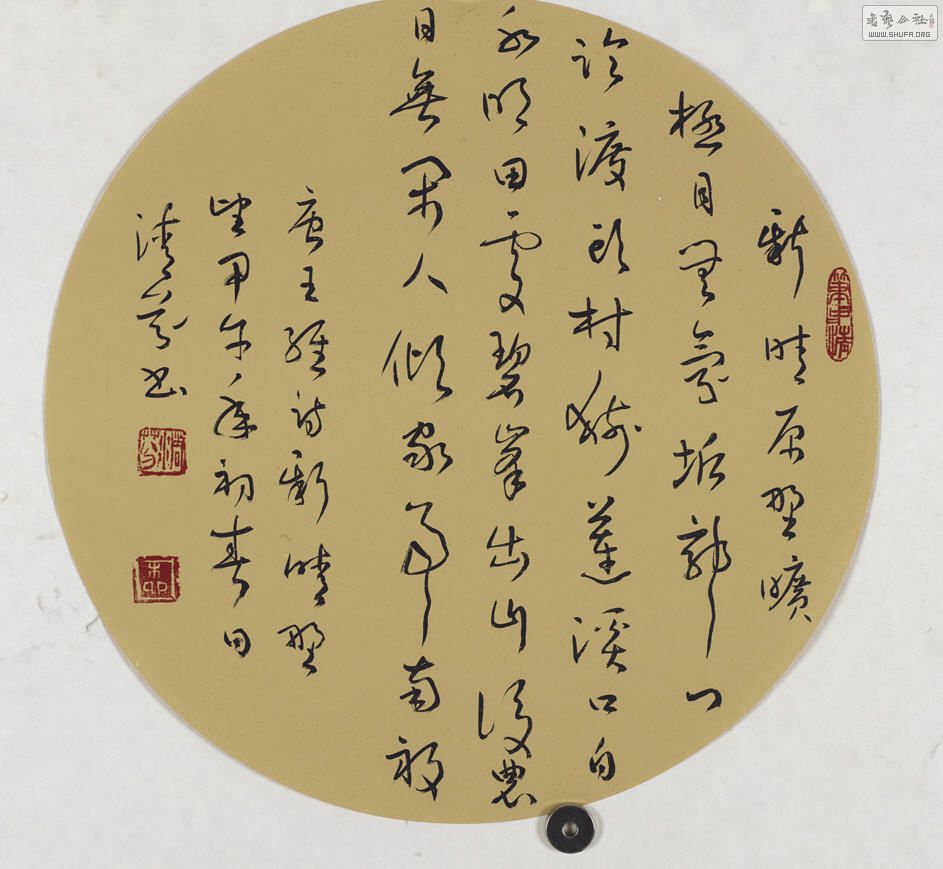 新晴原野曠
極目無氛垢郭門
臨渡頭村樹連溪口白
水明田外碧峯出山後農
日無閑人傾家事南畝
唐王維詩新晴野
望甲午年初春日
清芬書
WWW.SHUFA.ORG